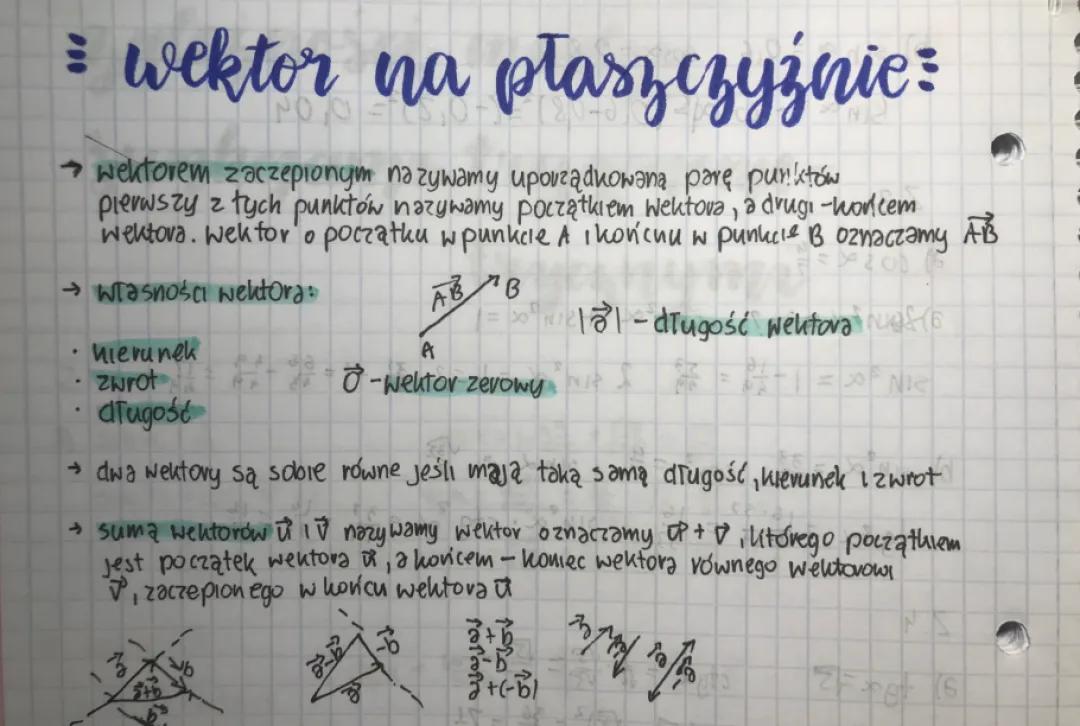 wektor na płaszczyźnie
→ wektorem zaczepionym nazywamy uporządkowaną parę punktów
pierwszy z tych punktów nazywamy początkiem wektora, a drugi - końcem
wektora. wektor o początku w punkcie A i końcu w punkcie B oznaczamy A⃗B
→ własności wektora:
A⃗B B
A
|a⃗| - długość wektora
· kierunek
· zwrot
· długość
0⃗ - wektor zerowy
→ dwa wektory są sobie równe jeśli mają taką samą długość, kierunek i zwrot
→ sumą wektorów u⃗ i v⃗ nazywamy wektor oznaczamy u⃗ + v⃗, którego początkiem
jest początek wektora u⃗, a końcem - koniec wektora równego wektorowi
v⃗, zaczepionego w końcu wektora u⃗
a⃗ b⃗ a⃗+b⃗ b⃗
a⃗-b⃗ -b⃗ a⃗
a⃗+b⃗
a⃗-b⃗
a⃗+(-b⃗)